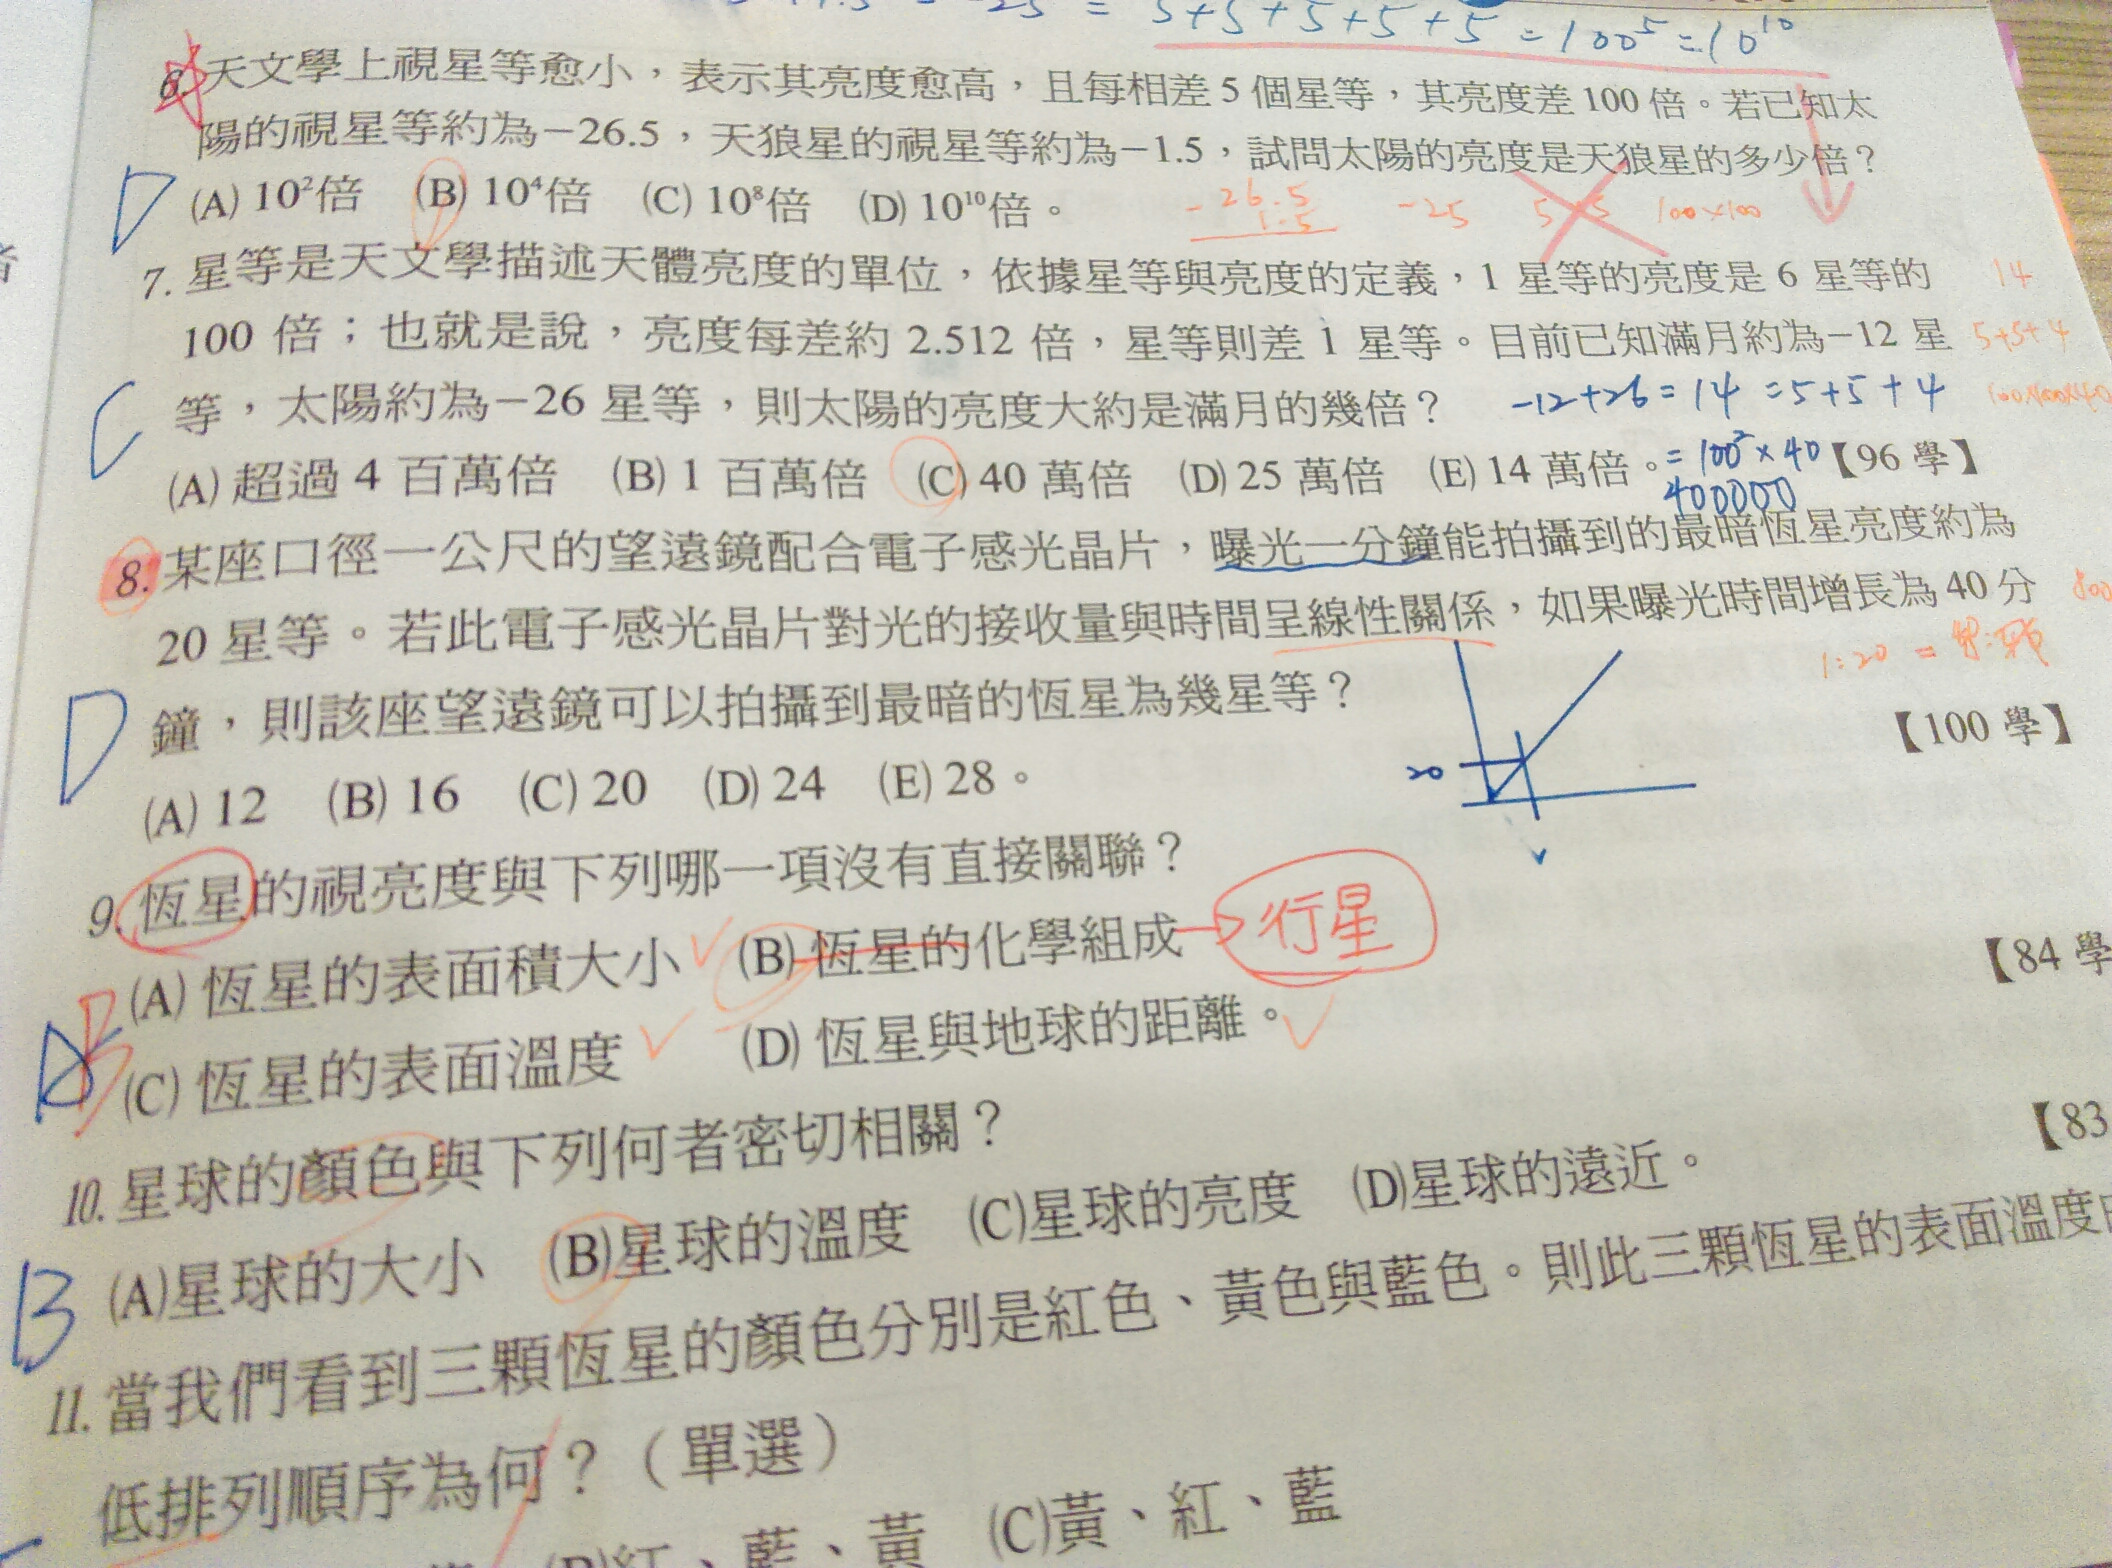 5+5+5+5+5=100⁵=10¹⁰
6.天文學上視星等愈小，表示其亮度愈高，且每相差5個星等，其亮度差100倍。若已知太
陽的視星等約為−26.5，天狼星的視星等約為−1.5，試問太陽的亮度是天狼星的多少倍？
D
(A) 10²倍 (B) 10⁴倍 (C) 10⁸倍 (D) 10¹⁰倍。
-26.5
1.5
-25
100×100
7. 星等是天文學描述天體亮度的單位，依據星等與亮度的定義，1 星等的亮度是 6 星等的
14
100 倍；也就是說，亮度每差約 2.512 倍，星等則差 1 星等。目前已知滿月約為−12 星
5+5+4
C
等，太陽約為−26 星等，則太陽的亮度大約是滿月的幾倍？
-12+26=14=5+5+4
(A) 超過 4 百萬倍 (B) 1 百萬倍 (C) 40 萬倍 (D) 25 萬倍 (E) 14 萬倍。
=100²×40
【96 學】
400000
8. 某座口徑一公尺的望遠鏡配合電子感光晶片，曝光一分鐘能拍攝到的最暗恆星亮度約為
20 星等。若此電子感光晶片對光的接收量與時間呈線性關係，如果曝光時間增長為 40 分
800
1:20 =
D
鐘，則該座望遠鏡可以拍攝到最暗的恆星為幾星等？
【100 學】
20
(A) 12 (B) 16 (C) 20 (D) 24 (E) 28。
9. 恆星的視亮度與下列哪一項沒有直接關聯？
(A) 恆星的表面積大小 (B) 恆星的化學組成
行星
【84 學
B
(C) 恆星的表面溫度 (D) 恆星與地球的距離。
10. 星球的顏色與下列何者密切相關？
【83
B
(A)星球的大小 (B)星球的溫度 (C)星球的亮度 (D)星球的遠近。
11. 當我們看到三顆恆星的顏色分別是紅色、黃色與藍色。則此三顆恆星的表面溫度
低排列順序為何？（單選）
(B)紅、藍、黃 (C)黃、紅、藍